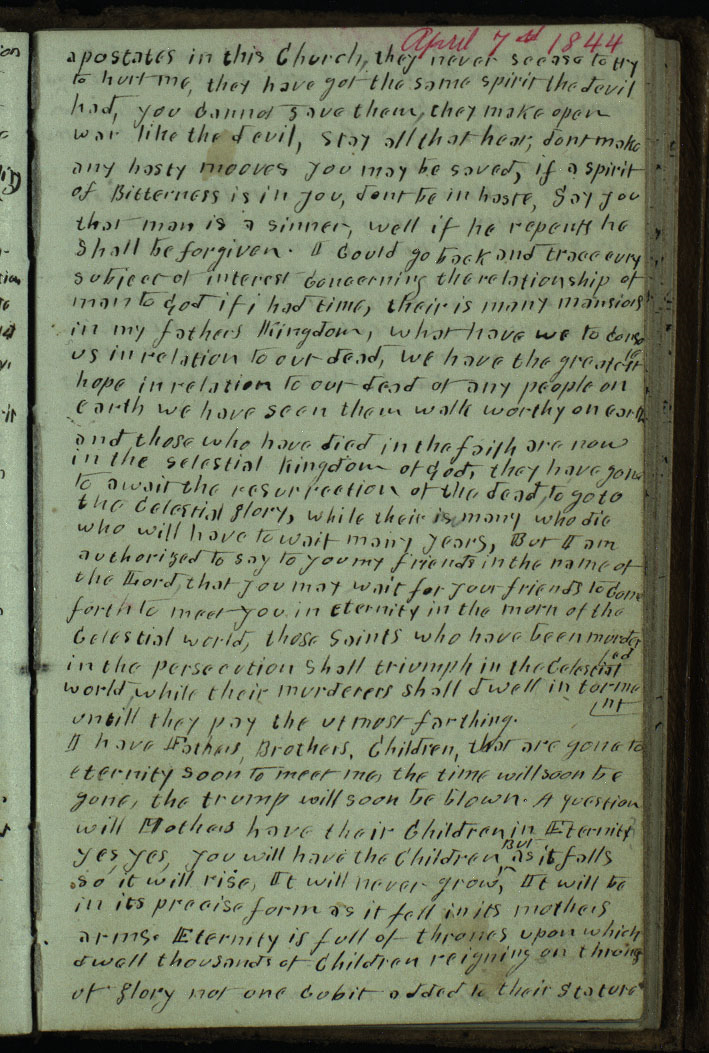 April 7th 1844
apostates in this Church, they never seease to try
to hurt me, they have got the same spirit the devil
had, you Cannot save them, they make open
war like the devil, stay all that hear, dont make
any hasty mooves you may be saved, if a spirit
of Bitterness is in you, dont be in haste, Say you
that man is a sinner, well if he repents he
Shall be forgiven. I Could go back and trace evry
subject of interest Concerning the relationship of
man to God if i had time, their is many mansions
in my fathers Kingdom, what have we to Conso
le
us in relation to our dead, we have the greatest
hope in relation to our dead of any people on
earth we have seen them walk worthy on earth
and those who have died in the faith are now
in the selestial kingdom of God, they have gone
to await the resurrection of the dead, to go to
the Celestial glory, while their is many who die
who will have to wait many years, But I am
authorized to say to you my friends in the name of
the Lord, that you may wait for your friends to Come
forth to meet you in eternity in the morn of the
Celestial world, those Saints who have been murder
ed
in the persecution Shall triumph in the Celestial
world, while their murderers shall dwell in torme
nt
untill they pay the utmost farthing.
I have Fathers, Brothers, Children, that are gone to
eternity soon to meet me, the time will soon be
gone, the trump will soon be blown. A question
will Mothers have their Children in Eternity
yes, yes, you will have the Children But as it falls
so, it will rise, It will never grow, It will be
in its precise form as it fell in its mothers
arms. Eternity is full of thrones upon which
dwell thousands of Children reigning on thrones
of glory not one Cubit added to their Stature